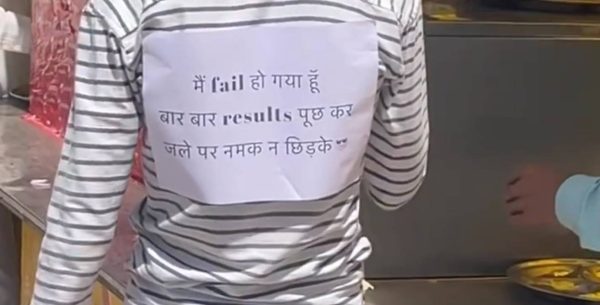 मैं fail हो गया हूँ
बार बार results पूछ कर
जले पर नमक न छिड़के